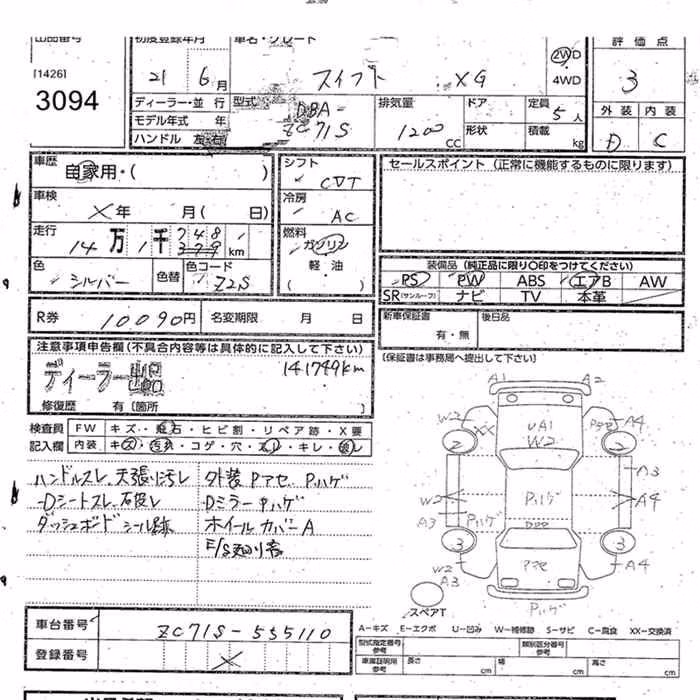 出品番号
[1426]
3094
初度登録年月
21 6月
車名・グレード
スイフト XG
2WD
4WD
評価点
3
ディーラー・並行
モデル年式 年
ハンドル 左・右
型式
DBA-
ZC71S
排気量
1200 CC
ドア
形状
定員 5人
積載 kg
外装 内装
D C
車歴
自家用・( )
車検
X年 月( 日)
走行
14万1千748 km
379
色
シルバー
色替
色コード
Z2S
シフト
CVT
冷房
AC
燃料
ガソリン
軽・油
セールスポイント (正常に機能するものに限ります)
装備品 (純正品に限り○印をつけてください)
PS PW ABS エアB AW
SR(サンルーフ) ナビ TV 本革
R券 10090円 名変期限 月 日
新車保証書
有・無
後日品
〔保証書は事務局へ提出して下さい〕
注意事項申告欄 (不具合内容等は具体的に記入して下さい)
ディーラー
141749km
修復歴 有〔箇所
検査員
記入欄
FW キズ・飛石・ヒビ割・リペア跡・X要
内装 キズ・汚れ・コゲ・穴・スレ・キレ・破レ
ハンドルスレ、天張り汚レ
Dシートスレ、破レ
ダッシュボード シール跡
外装 Pアセ Pハゲ
Dミラー Pハゲ
ホイールカバーA
E/S廻り音
A1 A2
W2 XX UA1 W2 Pアセ A4
2 2
W2 A3 Pハゲ Pハゲ A3 A4
3 3
W2 A3 Pアセ A4
Pハゲ
スペアT
車台番号 ZC71S-555110
登録番号 X
A-キズ E-エクボ U-凹み W-補修跡 S-サビ C-腐食 XX-交換済
型式指定番号
参考
類別区分番号
参考
車庫証明用
参考
長さ cm 幅 cm 高さ cm